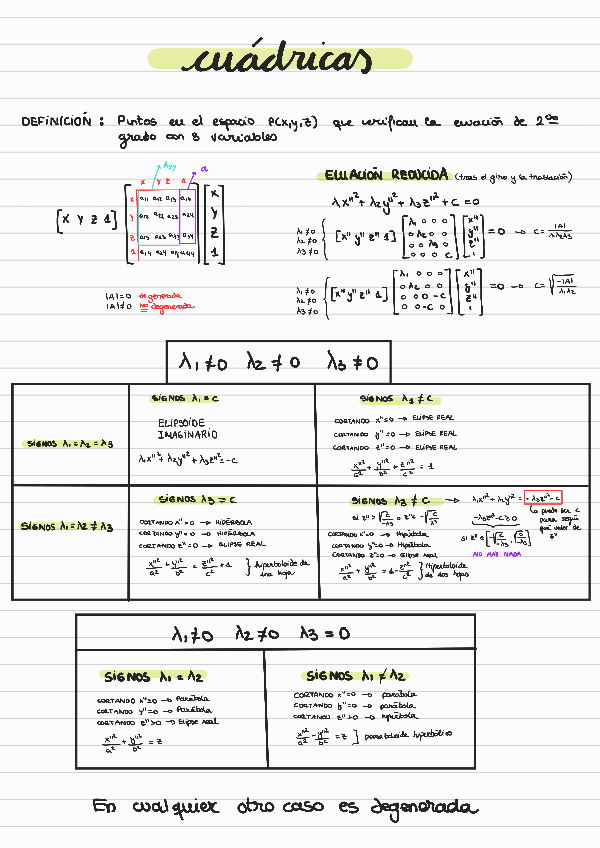 cuádricas
DEFINICIÓN : Puntos en el espacio P(x,y,z) que verifican la ecuación de 2º
grado con 3 variables
λxy a
x y z 1
[x y z 1] [x a11 a12 a13 a14] [x]
[y a12 a22 a23 a24] [y]
[z a13 a23 a33 a34] [z]
[1 a14 a24 a34 a44] [1]
|A|=0 degenerada
|A|≠0 no degenerada
ECUACIÓN REDUCIDA (tras el giro y la traslación)
λx''² + λ2y''² + λ3z''² + C = 0
λ1≠0
λ2≠0
λ3≠0
[x'' y'' z'' 1] [λ1 0 0 0; 0 λ2 0 0; 0 0 λ3 0; 0 0 0 C] [x'' y'' z'' 1] = 0 → C= |A|/λ1λ2λ3
λ1≠0
λ2≠0
λ3≠0
[x'' y'' z'' 1] [λ1 0 0 0; 0 λ2 0 0; 0 0 0 -C; 0 0 -C 0] [x'' y'' z'' 1] =0 → C= √(-|A|/λ1λ2)
λ1≠0 λ2≠0 λ3≠0
SIGNOS λ1=λ2=λ3
SIGNOS λ1=C
ELIPSOIDE
IMAGINARIO
λ1x''²+λ2y''²+λ3z''²=-C
SIGNOS λ3≠C
CORTANDO x''=0 → ELIPSE REAL
CORTANDO y''=0 → ELIPSE REAL
CORTANDO z''=0 → ELIPSE REAL
x''²/a² + y''²/b² + z''²/c² = 1
SIGNOS λ1=λ2≠λ3
SIGNOS λ3=C
CORTANDO x''=0 → HIPÉRBOLA
CORTANDO y''=0 → HIPÉRBOLA
CORTANDO z''=0 → ELIPSE REAL
x''²/a² + y''²/b² = z''²/c² + 1 } hiperboloide de
una hoja
SIGNOS λ3≠C → λ1x''²+λ2y''² = -λ3z''²-C
Si z''> √(C/-λ3) o z''< -√(C/-λ3)
CORTANDO x''=0 → Hipérbola
CORTANDO y''=0 → Hipérbola
CORTANDO z''=0 → Elipse real
x''²/a² + y''²/b² = 1-z''²/c² } Hiperboloide
de dos hojas
-λ3z''²-C≥0
Si z''∈[-√(C/-λ3), √(C/-λ3)]
NO HAY NADA
puede ser C
para según
qué valor de
z''
λ1≠0 λ2≠0 λ3=0
SIGNOS λ1=λ2
CORTANDO x''=0 → Parábola
CORTANDO y''=0 → Parábola
CORTANDO z''>0 → Elipse real
x''²/a² + y''²/b² = z
SIGNOS λ1≠λ2
CORTANDO x''=0 → parábola
CORTANDO y''=0 → parábola
CORTANDO z''=0 → hipérbola
x''²/a² - y''²/b² = z ] paraboloide hiperbólico
En cualquier otro caso es degenerada